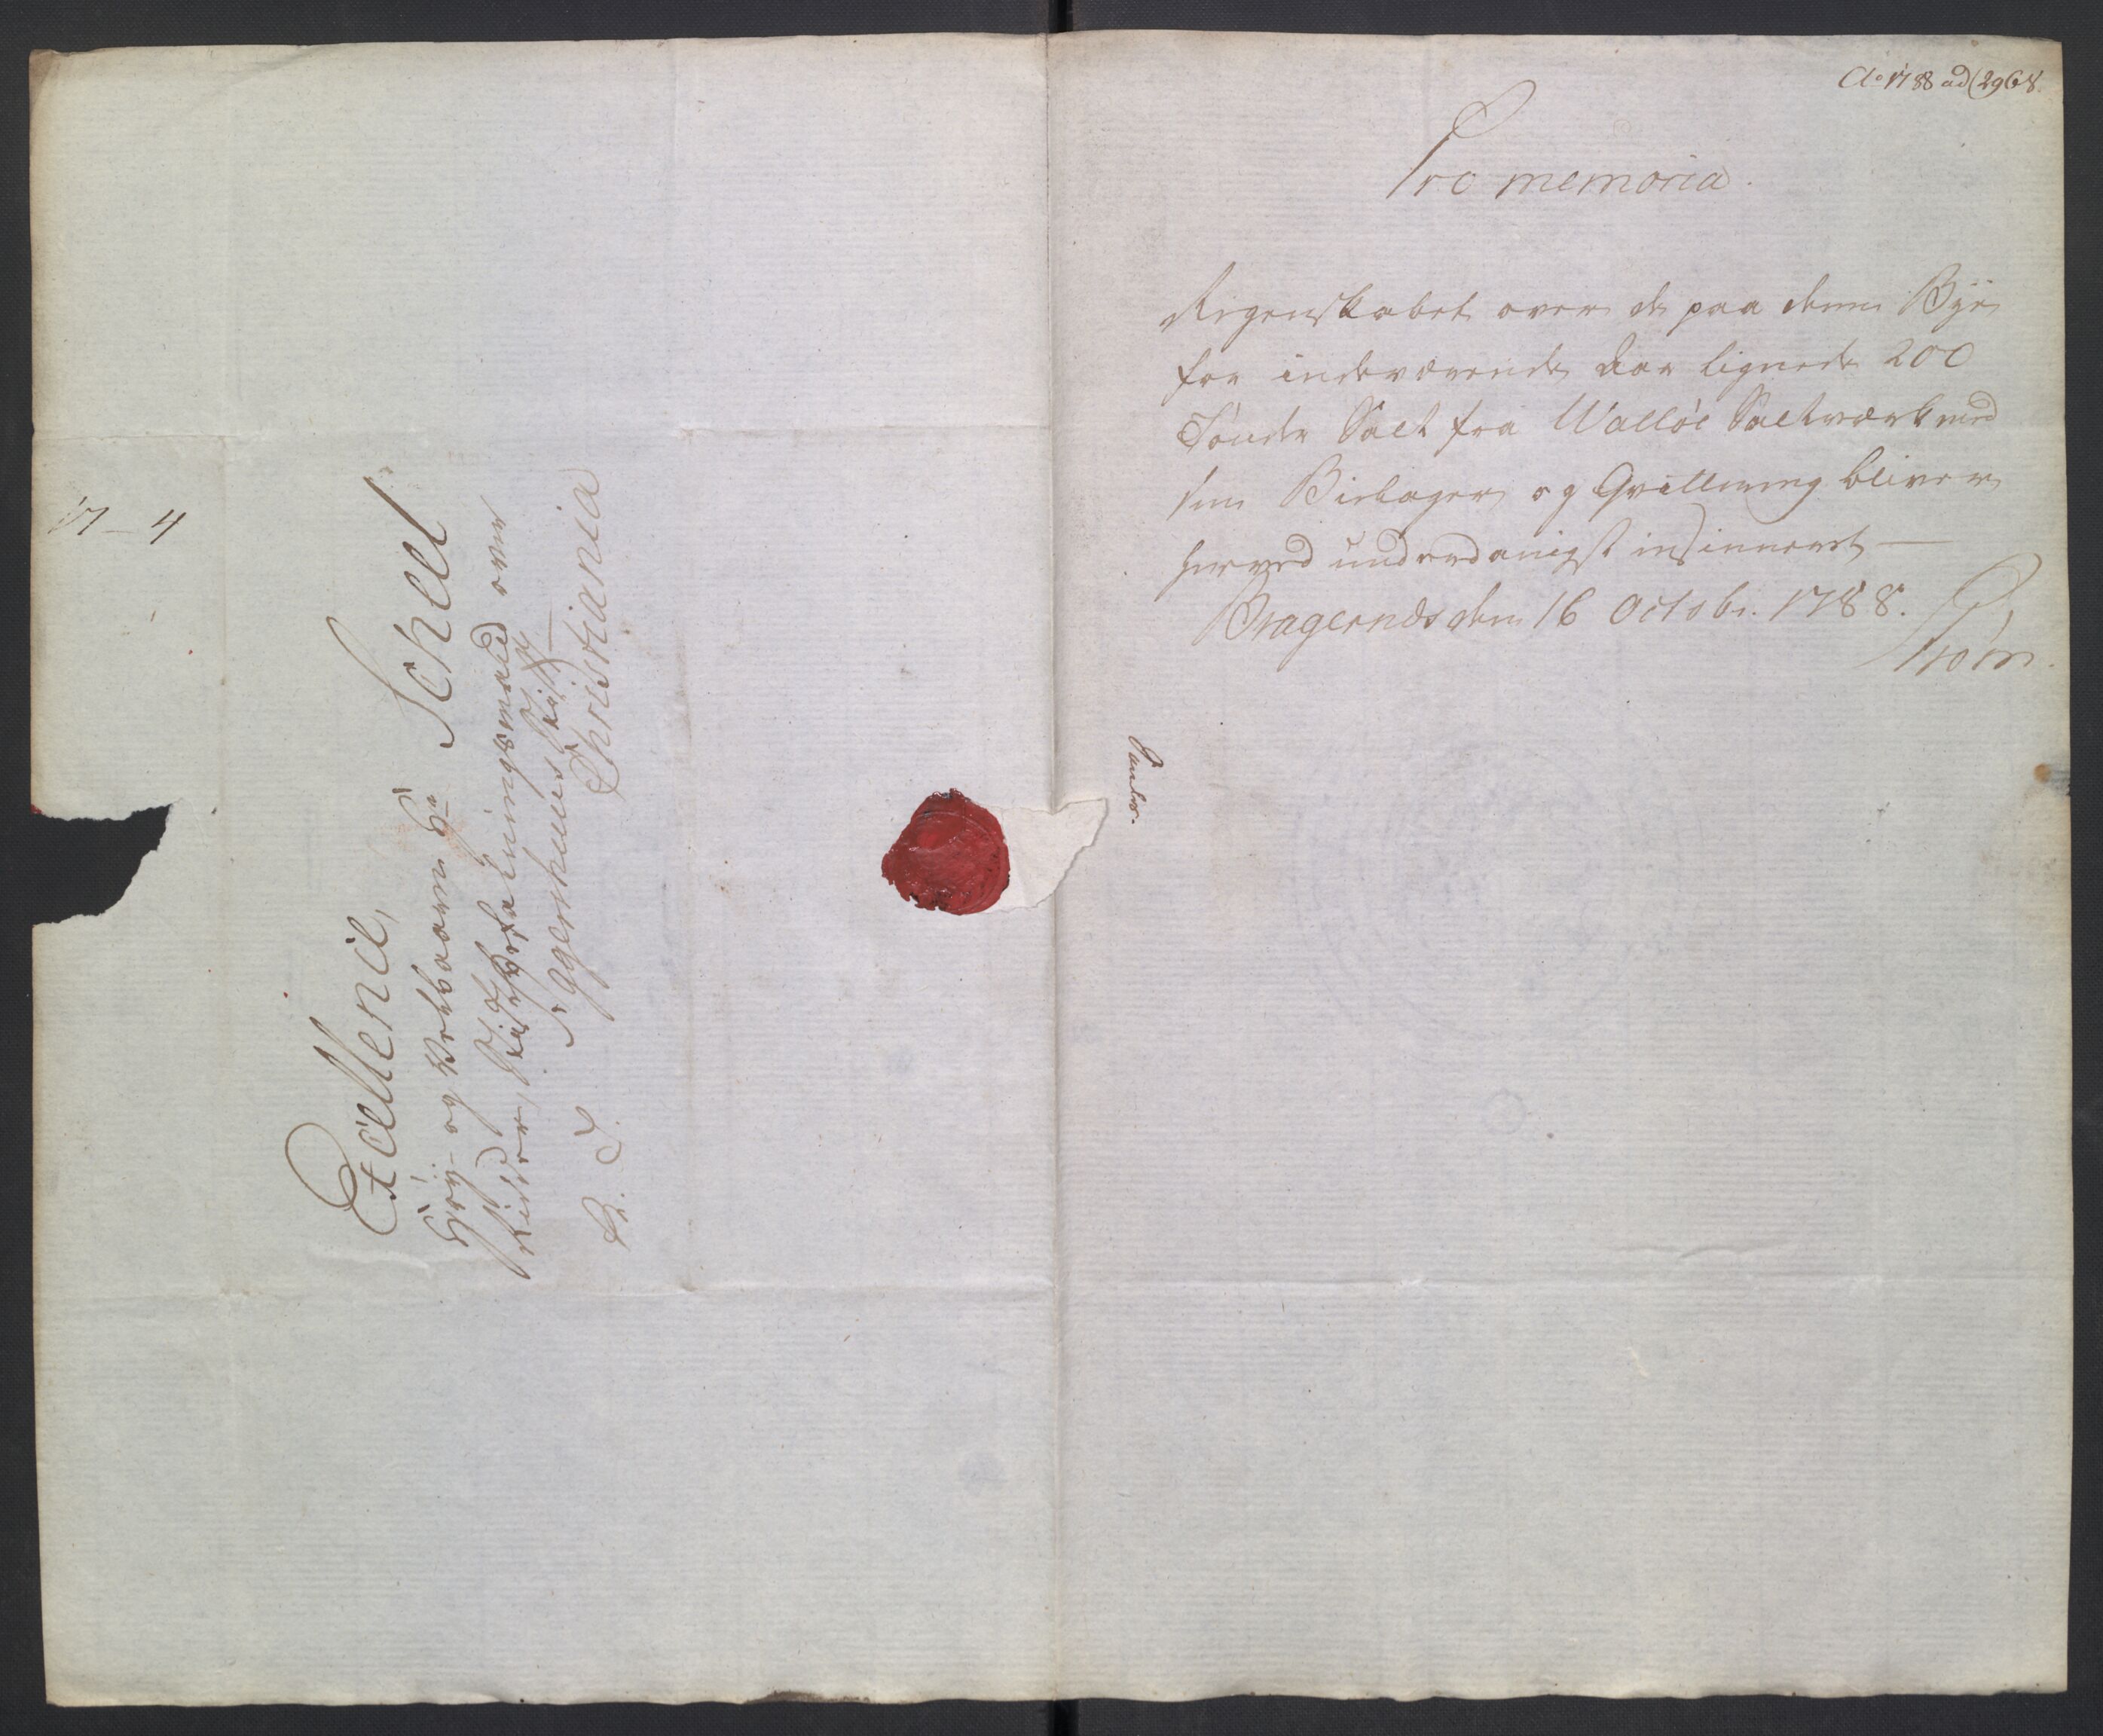 17 – 4
Excellence,
Høy- og Velbaarne Hr Scheel
Ridder, Stiftsbefalningsmand over
Aggershuus Stift
Christiania
Ao 1788 ad 2968.
Pro memoria.
Regenskabet over de paa denne Bye
for indeværende Aar lignede 200
Tønder Salt fra Walløe Saltværk med
sine Bielager og Qvittering bliver
herved underdanigst insinueret —
Bragernæs den 16 Octobr. 1788.